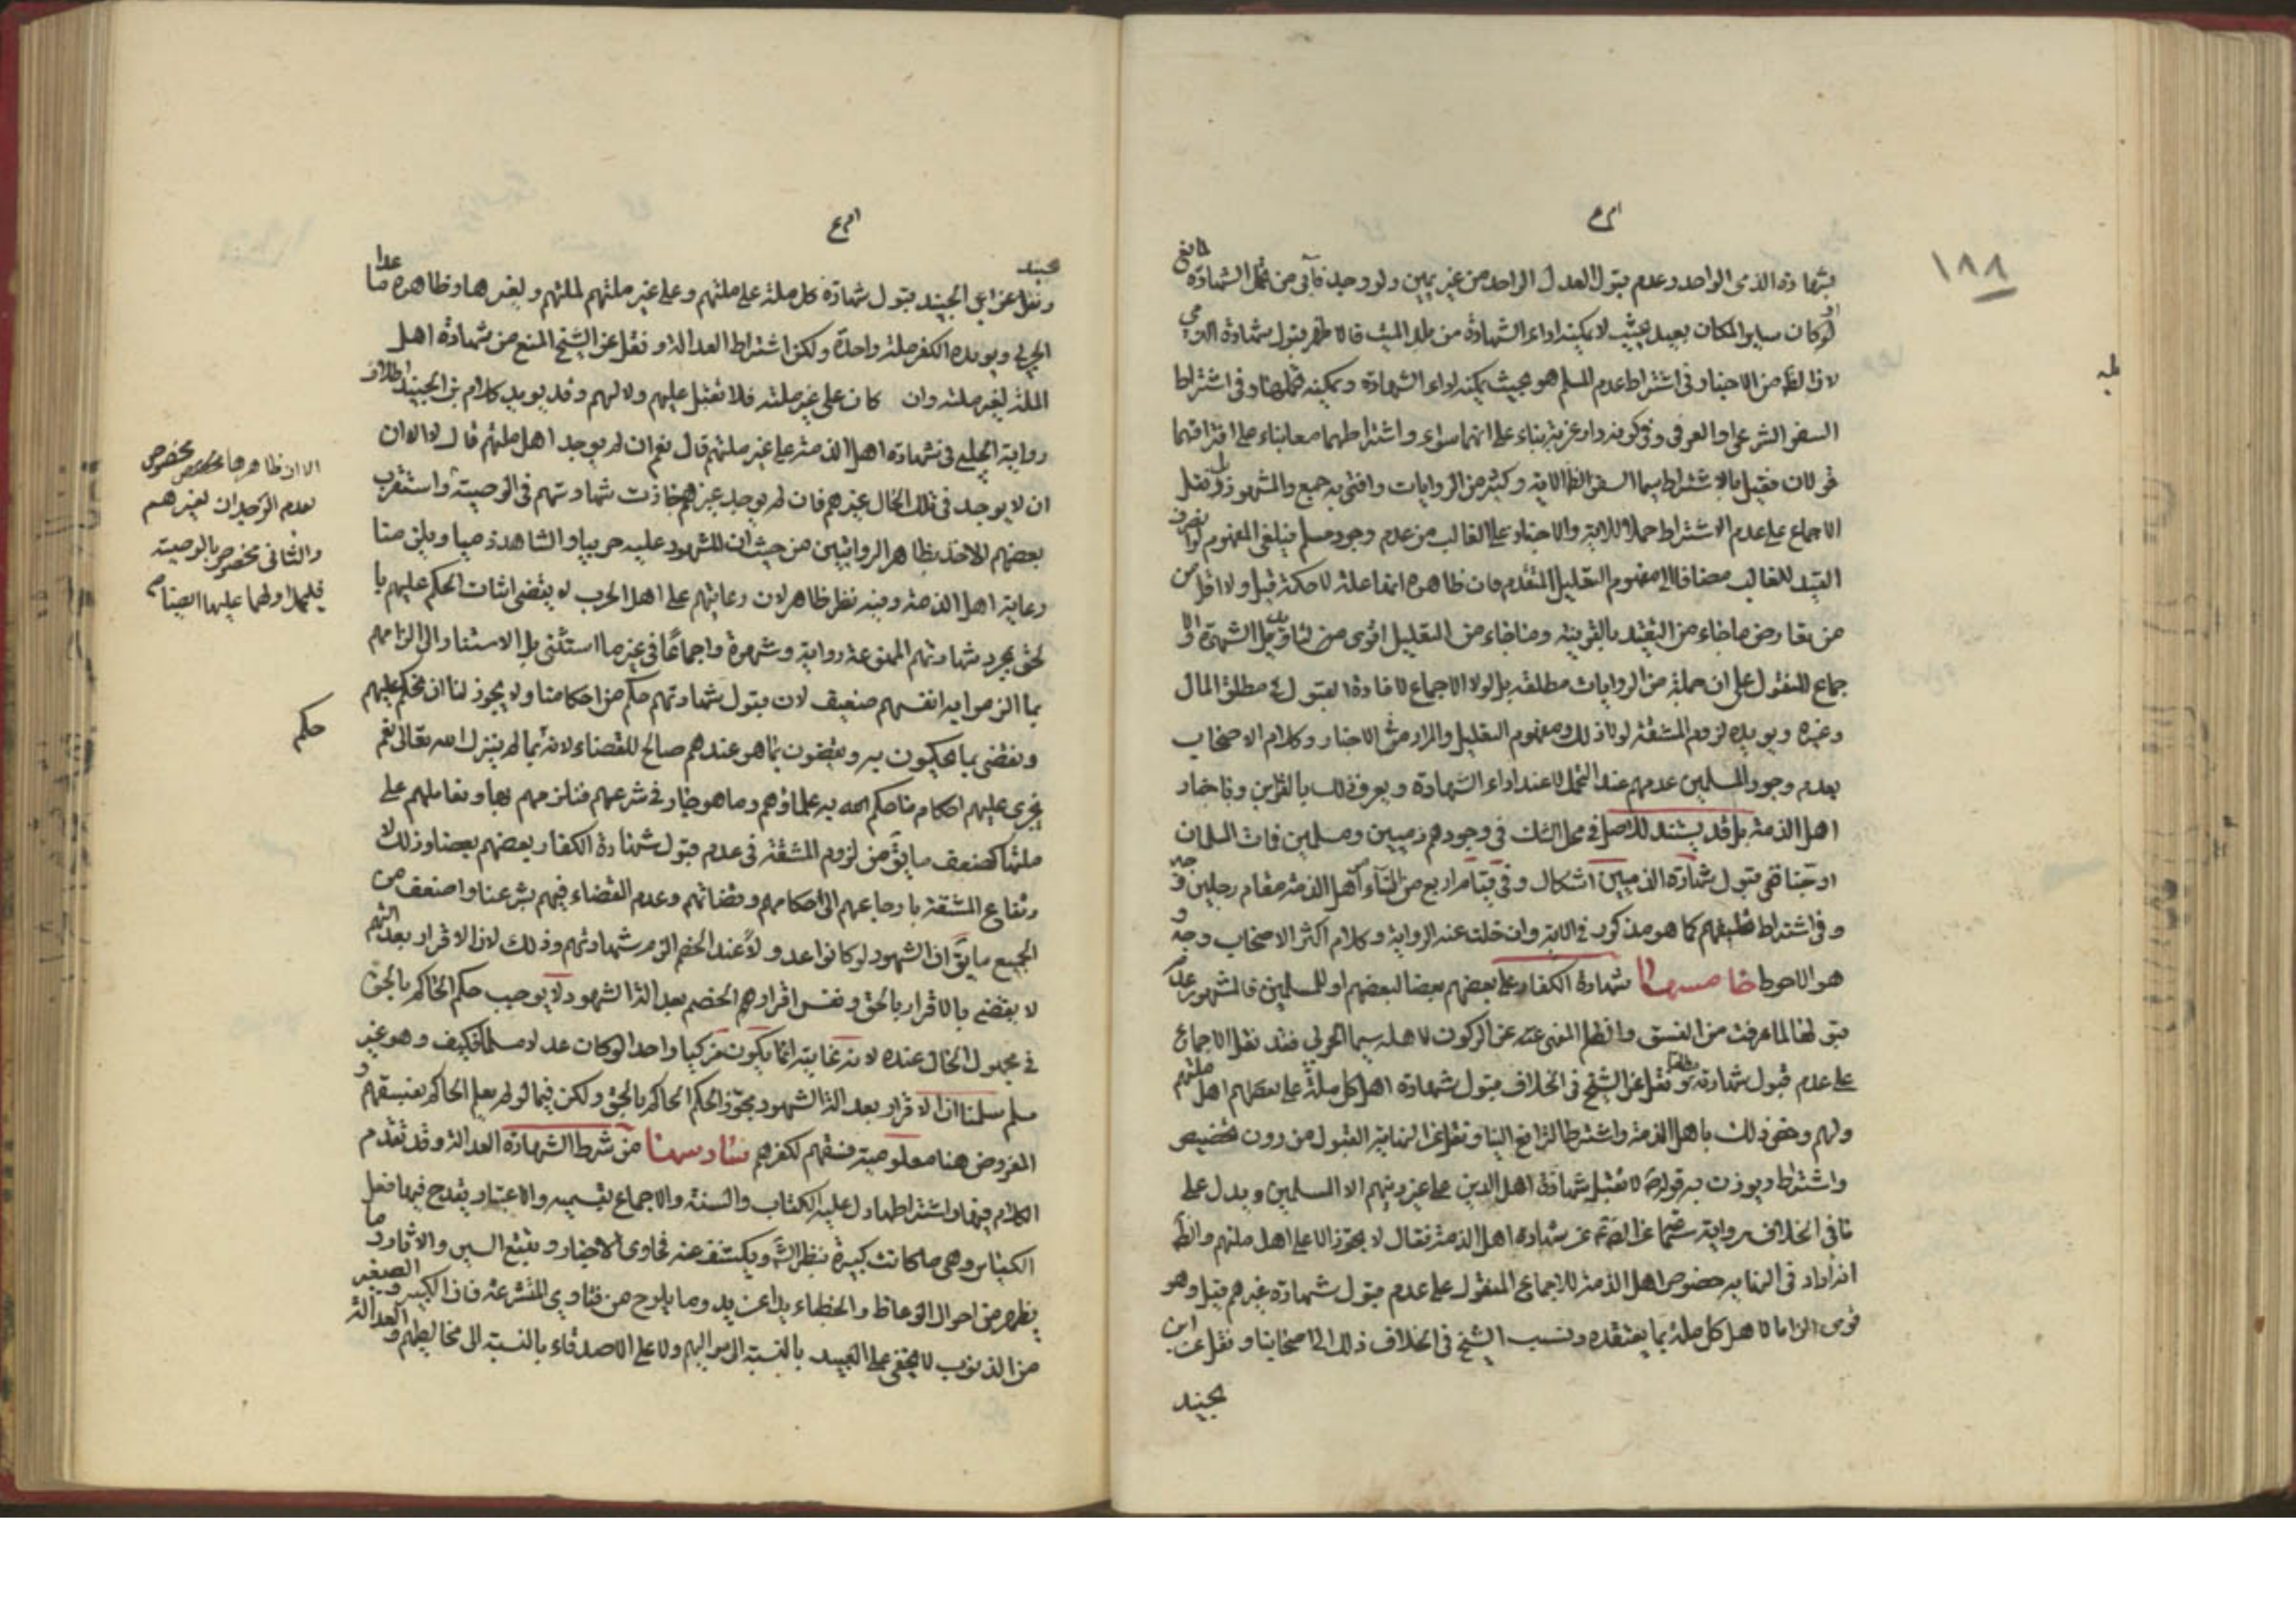 ١٨٨
بشهادة الذمى الواحد وعدم قبول العدل الواحد من غير يمين ولو وجد من تحمل الشهادة
لو كان ساير المكان بعيد بحيث لا يمكنه اداء الشهادة من بلد الميت قبول شهادة
من الاخبار وفى اشتراط عدم المسلم هو بحيث يمكنه اداء الشهادة ويمكنه وفى اشتراط
السفر الشرعى او العرفى وفى كونه دار غربة بناء على انهما سواء واشتراطهما معا بناء على افتراقهما
قولان فقيل بالاشتراط سيما السفر لظ الاية وكثير من الروايات وافتى به جمع والمشهور بل نقل
الاجماع على عدم الاشتراط حملا للاية والاخبار على الغالب من عدم وجود مسلم فيلغى المفهوم
القيد للغالب مضافا الى مفهوم التعليل المتقدم فان ظاهره انها علة لا حكمة قبل ولا اقل من
من تعارض ما جاء من التقييد بالقرينة وما جاء من التعليل اقوى من الشهرة
جماع المنقول على ان جملة من الروايات مطلقة بل لولا الاجماع لافادة القبول فى مطلق المال
وغيره ويويده لزوم المشقة لولا ذلك ومفهوم التعليل والمراد من الاخبار وكلام الاصحاب
بعدم وجود المسلمين عدمهم عند التحمل لا عند اداء الشهادة ويعرف ذلك بالقراين وباخبار
اهل الذمة بل قد يستند للاصل فى محل الشك فى وجودهم ذميين ومسلمين فات المسلمان
ففى قبول شهادة الذميين اشكال وفى قيام اربع من النساء اهل الذمة مقام رجلين وجه
وفى اشتراط تحليفهم كما هو مذكور فى الاية وان خلت عنه الرواية وكلام اكثر الاصحاب وجه و
هو الاحوط خامسها شهادة الكفار على بعضهم بعضا لبعضهم او للمسلمين فالمشهور عدم
قبولها لما عرفت من الفسق والظلم المنهى عنه عن الركون لاهله سيما الحربى فقد نقل الاجماع
على عدم قبول شهادته مطلقا ونقل عن الشيخ فى الخلاف قبول شهادة اهل كل ملة على بعضهم اهل ملتهم
ولهم وخص ذلك باهل الذمة واشترط الترافع الينا ونقل عن النهاية القبول من دون تخصيص
واشتراط ويوذن به قوله لا تقبل شهادة اهل الدين على غير دينهم الا المسلمين ويدل على
ما فى الخلاف رواية سماعة عن الصم عن شهادة اهل الذمة فقال لا يجوز الا على اهل ملتهم والظ
انه اراد فى النهاية خصوص اهل الذمة للاجماع المنقول على عدم قبول شهادة غيرهم قيل وهو
قوى الزاما لاهل كل ملة بما يعتقده ونسب الشيخ فى الخلاف ذلك الى اصحابنا ونقل عن ابن
جنيد
ونقل عن ابن الجنيد قبول شهادة كل ملة على ملتهم وعلى غير ملتهم لملتهم ولغيرها وظاهره ما عدا
الحربى ويويده الكفر ملة واحدة ولكن اشتراط العدالة ونقل عن الشيخ المنع من شهادة اهل
الملة لغير ملته وان كان على غير ملته فلا تقبل عليهم ولا لهم وقد يويد كلام بن الجنيد اطلاق
رواية الحلبى فى شهادة اهل الذمة على غير ملتهم قال نعم ان لم يوجد اهل ملتهم قال لا الا ان
ان لا يوجد فى ذلك الحال غيرهم فان لم يوجد غيرهم جازت شهادتهم فى الوصية واستقرب
بعضهم الاخذ بظاهر الروايتين من حيث ان المشهود عليه حربيا والشاهد ذميا ويلزمنا
رعاية اهل الذمة وفيه نظر ظاهر لان رعايتهم على اهل الحرب لا يقتضى اثبات الحكم عليهم با
لحق بمجرد شهادتهم الممنوعة رواية وشهرة واجماعا فى غير ما استثنى بل الاستناد الى الزامهم
بما الزموا به انفسهم ضعيف لان قبول شهادتهم حكم من احكامنا ولا يجوز لنا ان نحكم عليهم
ونقضى بما يحكمون به ويقضون بما هو عندهم صالح للقضاء لانه بما لم ينزل الله تعالى نعم
يجرى عليهم احكام ما حكم به علماؤهم وما هو جار فى شرعهم فنلزمهم بها ونعاملهم على
ملتها كضعف ما يق من لزوم المشقة فى عدم قبول شهادة الكفار بعضهم بعضا وذلك لا
رتفاع المشقة بارجاعهم الى احكامهم وقضاتهم وعدم القضاء فيهم بشرعنا واضعف من
الجميع ما يق ان الشهود لو كانوا عدولا عند الخصم الزم شهادتهم وذلك لان الاقرار بعدالتهم
لا يقضى بالاقرار بالحق ونفس اقرارهم الخصم بعدالة الشهود لا يوجب حكم الحاكم بالحق
فى مجهول الحال عنده لانه غايته انما يكون مزكيا واحدا لو كان عدلا مسلما فكيف وهو غير
مسلم سلمنا ان الاقرار بعدالة الشهود مجوز الحكم الحاكم بالحق ولكن فيما لو لم يعلم الحاكم بفسقهم و
المفروض هنا معلومية فسقهم لكفرهم سادسها من شرط الشهادة العدالة وقد تقدم
الكلام فيها واشتراطها دل عليه الكتاب والسنة والاجماع بقسميه والاعتبار ويقدح فيها فعل
الكباير وهى ما كانت كبيرة بنظر الش ويكشف عنه فحاوى الاخبار وتتبع السير والاثار وما
يظهر من احوال الوعاظ والخطباء يدا عن يد وما يلوح من فتاوى المتشرعة فان الكبير والصغير
من الذنوب لا يخفى على العبيد بالنسبة الى مواليهم ولا على الاصدقاء بالنسبة الى مخاليطهم والعدالة
الا ان ظاهرها مخصوص
بعدم الوجدان لغيرهم
والثانى مخصوص بالوصية
حكم